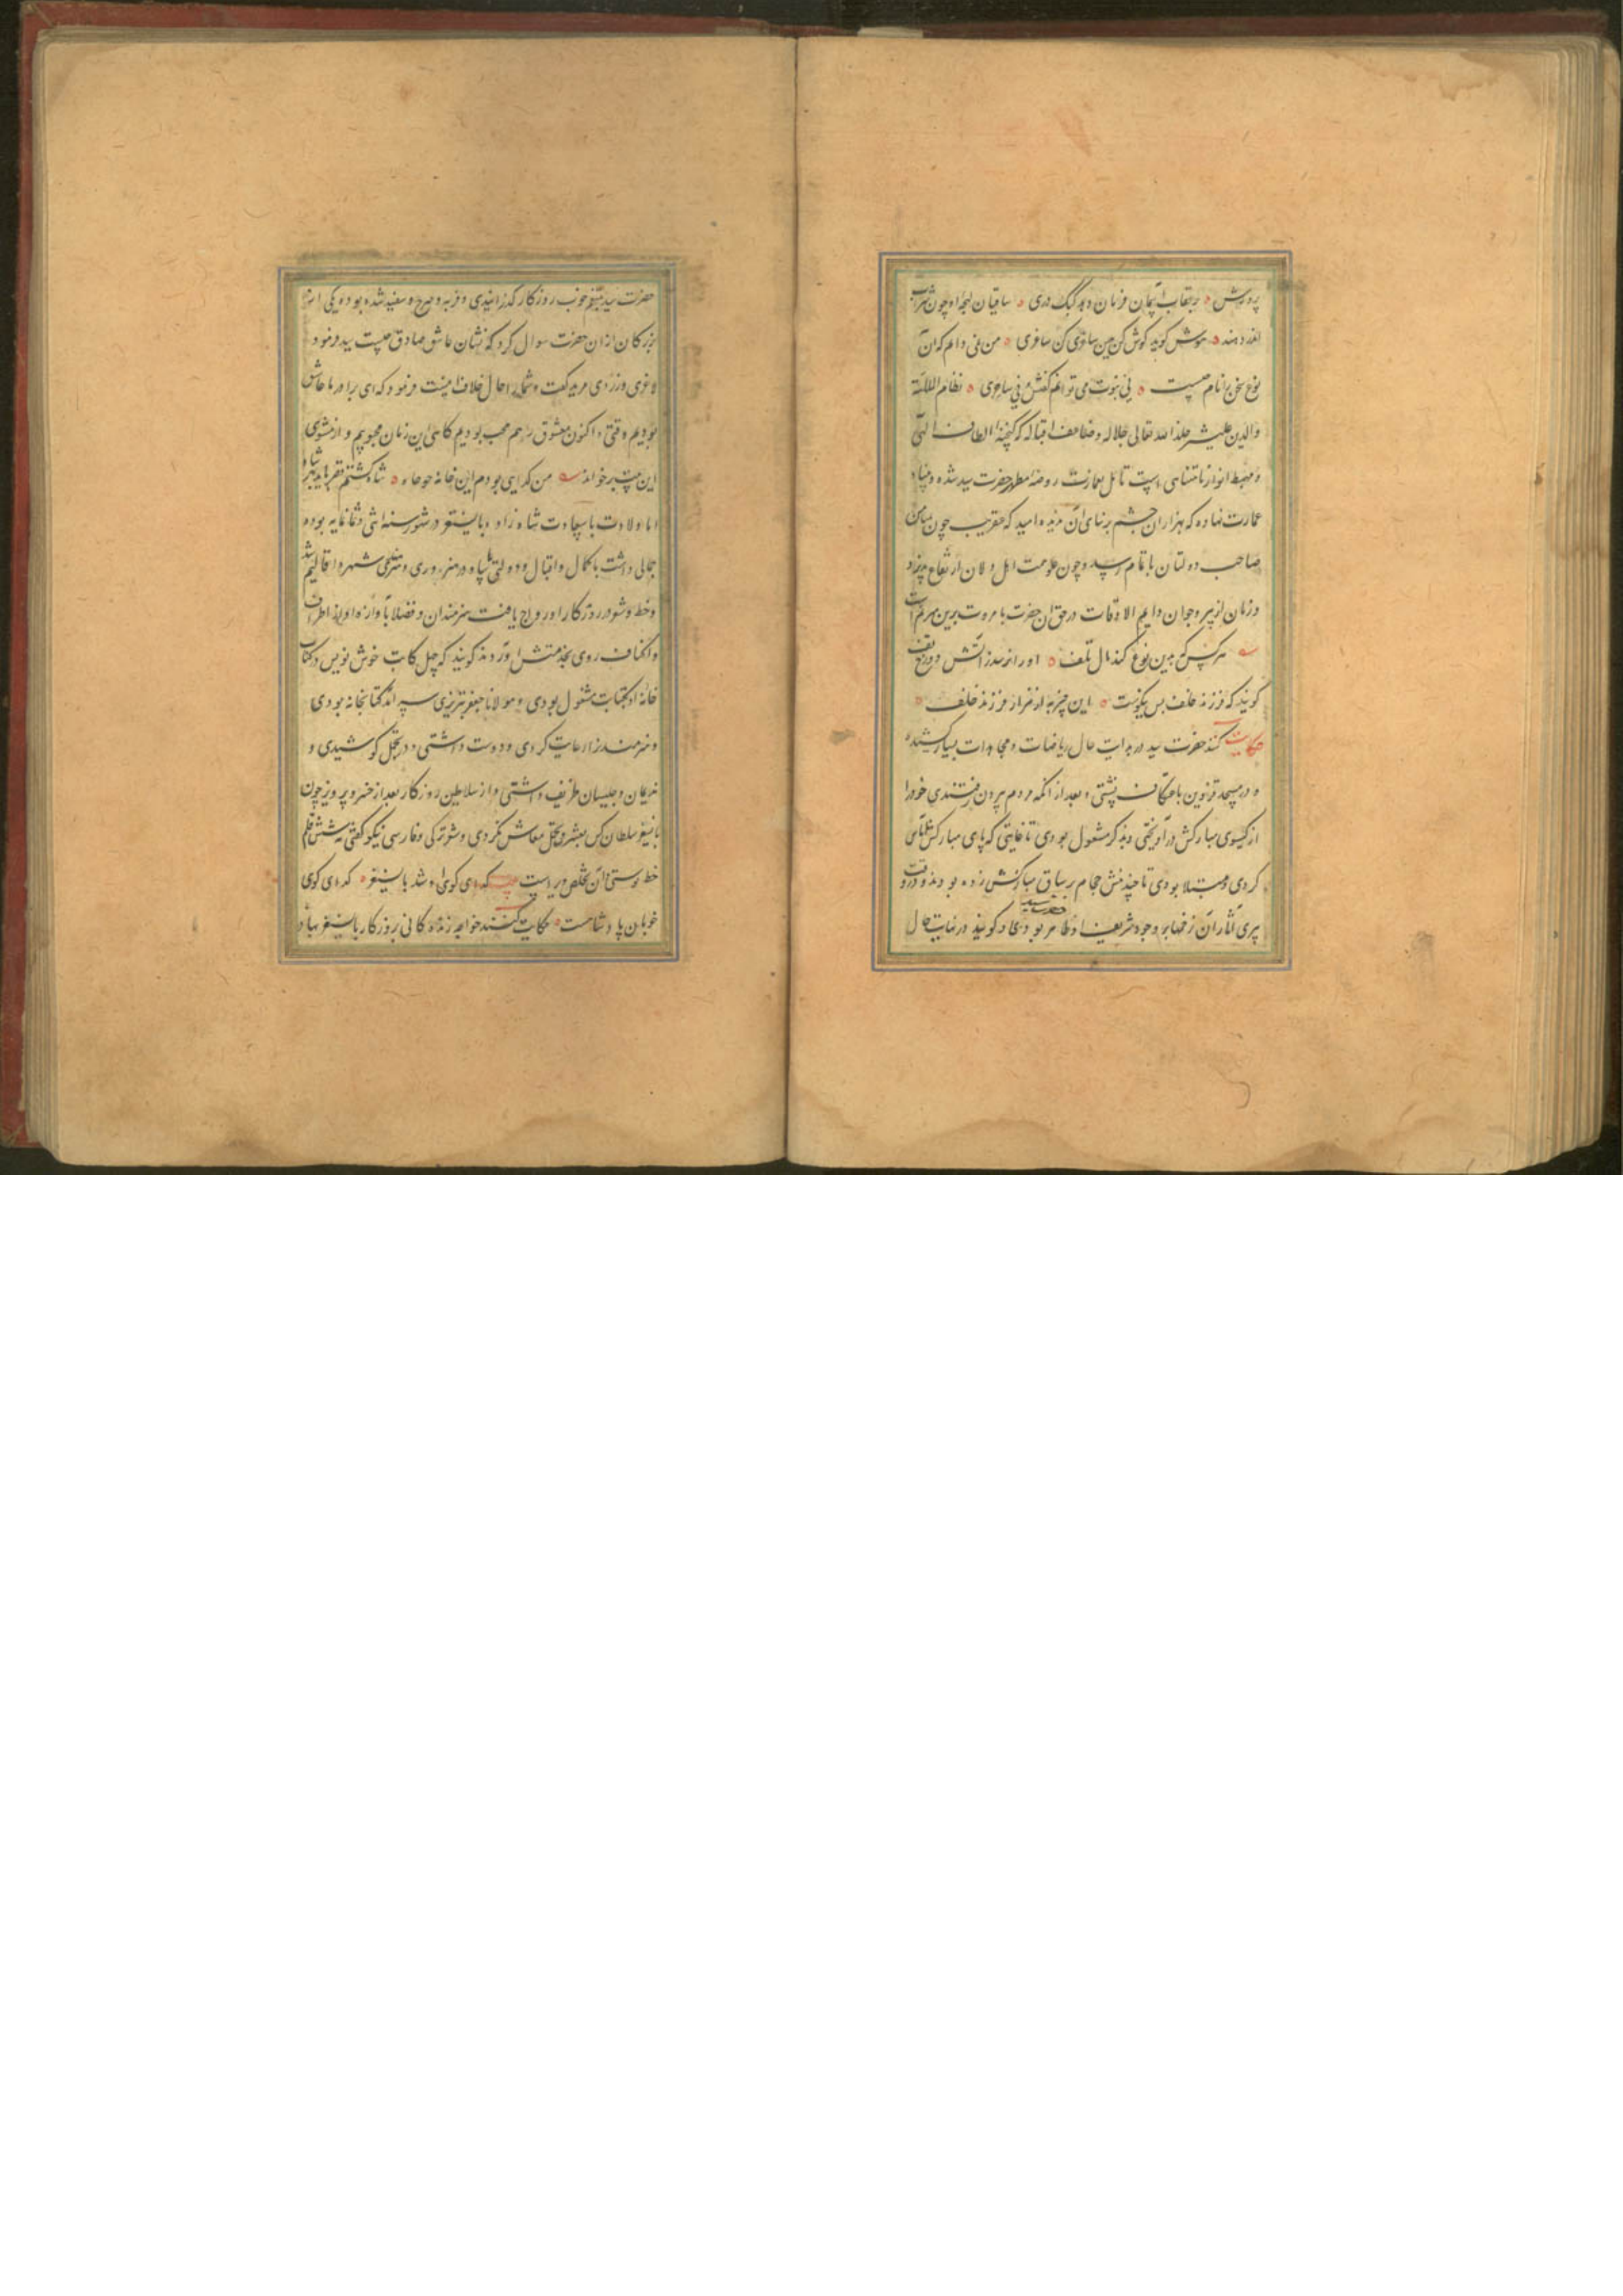 پرورش ه بر عقاب آسمان فرمان دهد کبک دری ه ساقیان لهجه او چون شراب
اندر دهند ه هوش گوید گوش کن هین ساغری کن ساغری ه من نمی دانم که آن
نوع سخن را نام چیست ه نی نبوت می توانم گفتش نی ساحری ه نظام الملة
والدین علیشیر خلد الله تعالی جلاله وضاعف اقباله که گنجینه الطاف الهی
و مهبط انوار نامتناهی است مائل بعمارت روضه مطهر حضرت سید شده و بنیاد
عمارت نهاده که هزاران چشم بر بنای آن ندیده امید که عنقریب چون میامن
صاحب دولتان باتمام رسد و چون علو همت اهل دلان ارتفاع پذیرد
و زبان از پیر و جوان دایم الاوقات در حق آن حضرت با مروت برین
هر کس که بدین نوع کند مال تلف ه او را نرسد ز آتش دوزخ تف
گویند که فرزند خلف بس نیکوست ه این چیز به از هزار فرزند خلف ه
حکایت کنند حضرت سید در بدایت حال ریاضات و مجاهدات بسیار کشیده
و در مسجد قزوین باعتکاف نشستی و بعد از آنکه مردم بیرون رفتندی خود را
از گیسوی مبارکش در آویختی و بذکر مشغول بودی تا غایتی که پای مبارکش
کردی و مبتلا بودی تا چند نیش حجام بر ساق مبارکش زده بودند و در وقت
پیری آثار آن زخمها بر وجود شریف او ظاهر بودی و گویند در نهایت حال
حضرت سید
حضرت سید بتنعم خوب روزگار گذرانیدی و فربه و سرخ و سفید شده بوده یکی از
بزرگان از آن حضرت سوال کرد که نشان عاشق صادق چیست سید فرمود
لاغری و زردی مرید گفت و شما را حال خلاف اینست فرمود که ای برادر ما عاشق
بودیم وقتی و اکنون معشوق شدیم محب بودیم گاهی این زمان محبوبیم و از مثنوی
این بیت بر خواند من گدایی بودم این خانه چو چاه ه شاه گشتم قصر باید بهر شاه
اما ولادت با سعادت شاه زاده بایسنغر در شهور سنه اثنی و ثمانمایه بوده
جمالی داشت با کمال و اقبال و دولتی و هنرپروری و هنرمندی شهره اقالیم شد
و خط و شعر در روزگار او رواج یافت هنرمندان و فضلا بآوازه او از اطراف
و اکناف روی بخدمتش آوردند گویند که چهل کاتب خوش نویس در کتاب
خانه او بکتابت مشغول بودی و مولانا جعفر تبریزی سر آمد کتابخانه بودی
و هنرمندان را رعایت کردی و دوست داشتی و در تجمل کوشیدی و
ندیمان و جلیسان ظریف داشتی و از سلاطین روزگار بعد از خسرو پرویز چون
بایسنغر سلطان کس بعشرت و تجمل معاش نکردی و شعر ترکی و فارسی نیکو گفتی و بشش قلم
خط نوشتی این تخلص او راست بیت گدای کوی او شد بایسنغر ه گدای کوی
خوبان پادشاهست ه حکایت کنند خواجه زنده کانی بروزگار بایسنغر بهادر